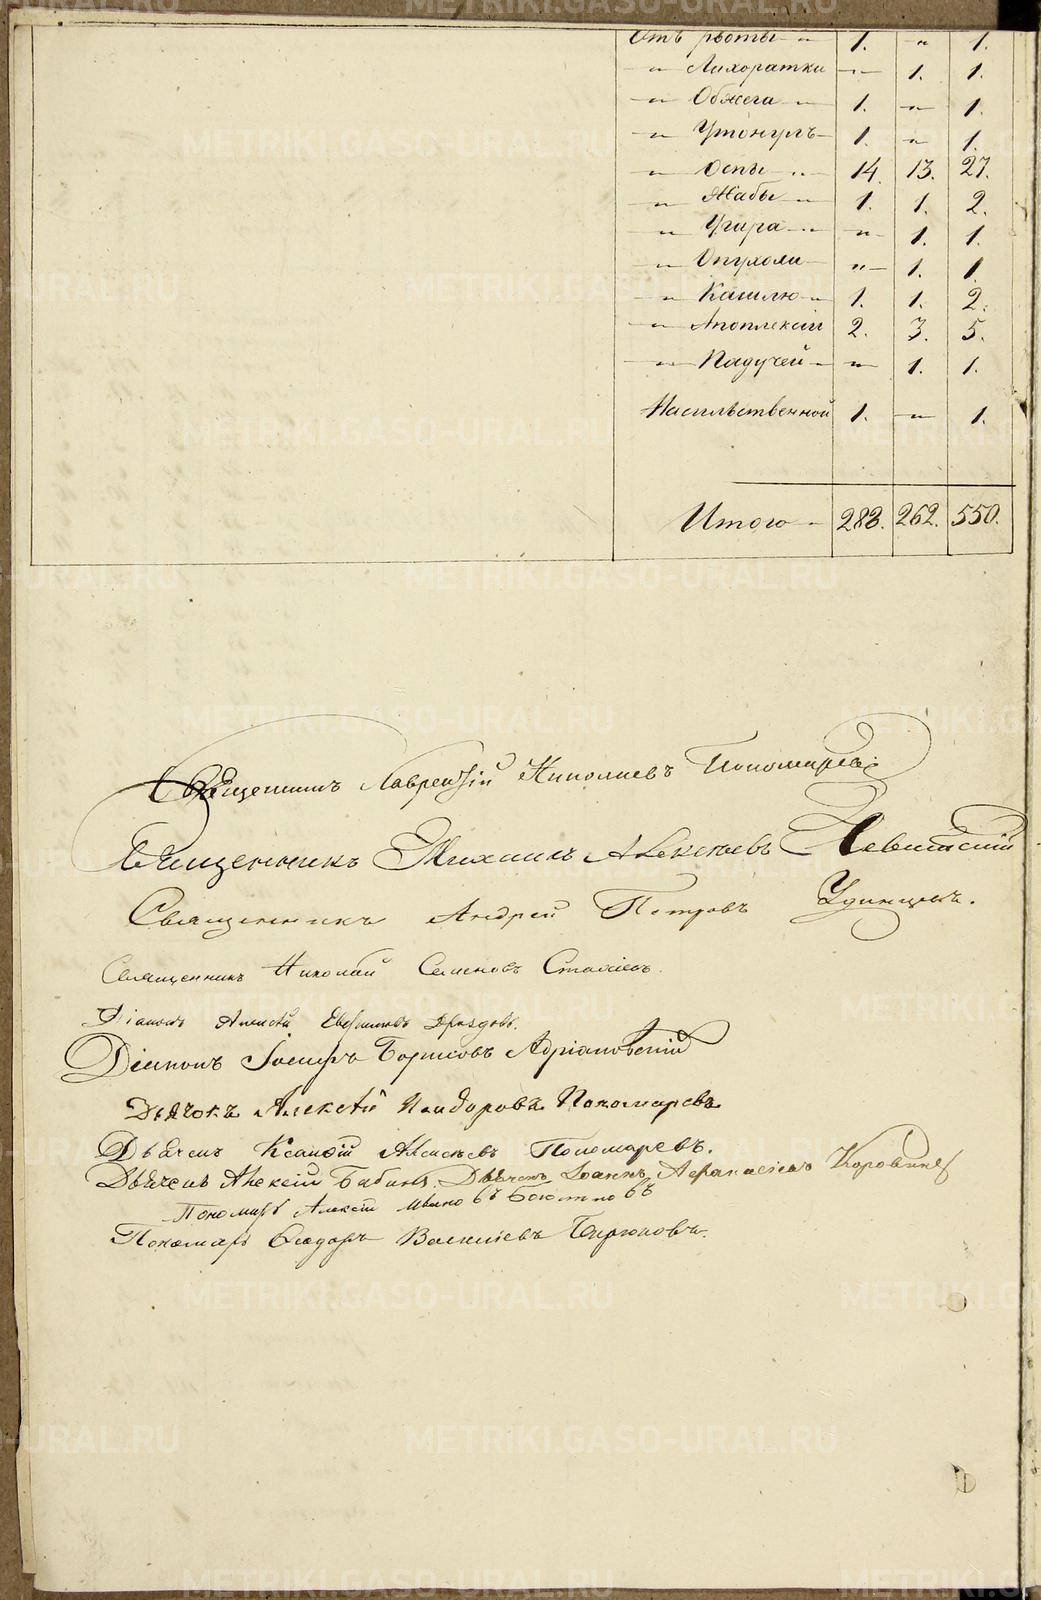 Отъ рвоты — „ — 1. „ 1.
„ Лихоратки „ 1. 1.
„ Обжега „ 1. „ 1.
„ Утонулъ 1. „ 1.
„ Оспы „ 14. 13. 27.
„ Жабы „ 1. 1. 2.
„ Угара „ „ 1. 1.
„ Опухоли „ 1. 1.
„ Кашлю „ 1. 1. 2.
„ Апоплексіи 2. 3. 5.
„ Падучей „ 1. 1.
Насильственной 1. „ 1.
Итого 288. 262. 550.
Священникъ Лаврентій Николаевъ Пономаревъ
Священникъ Михаилъ Алексѣевъ Левитскій
Священникъ Андрей Петровъ Удинцывъ.
Священникъ Николай Семеновъ Стахіевъ.
Діаконъ Алексѣй Дроздовъ.
Діаконъ Іосифъ Борисовъ Адріановскій
Дьячокъ Алексѣй Пономаревъ
Дьячекъ Алексѣевъ Пономаревъ.
Дьячекъ Алексій Бабинъ. Дьячекъ Іоаннъ Афанасіевъ Коровинъ
Пономарь Алексій
Пономарь Ѳеодоръ Василіевъ Бирюковъ.